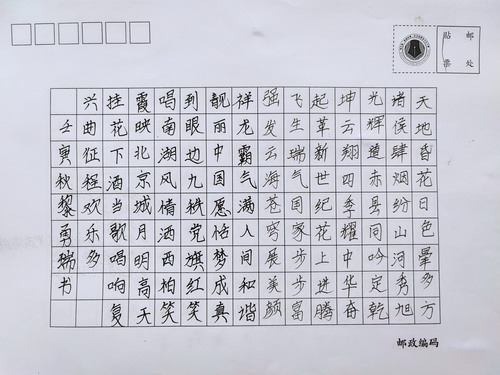 贴邮
票处
天地昏花日色晕多方
诸侯肆烟纷山河秀旭
光辉道赤县同吟定乾
坤云翔四季耀中华奋
起革新世纪花上进腾
飞生瑞气国家步步富
强发云海苍穹展美颜
祥龙霸气满人间和谐
靓丽中国愿恬梦成真
到眼边九秩党旗红笑
唱南湖风情洒西柏笑
霞映北京城月明高天
挂花下酒当歌唱响复
兴曲征程欢乐多
壬寅秋黎勇瑞书
邮政编码